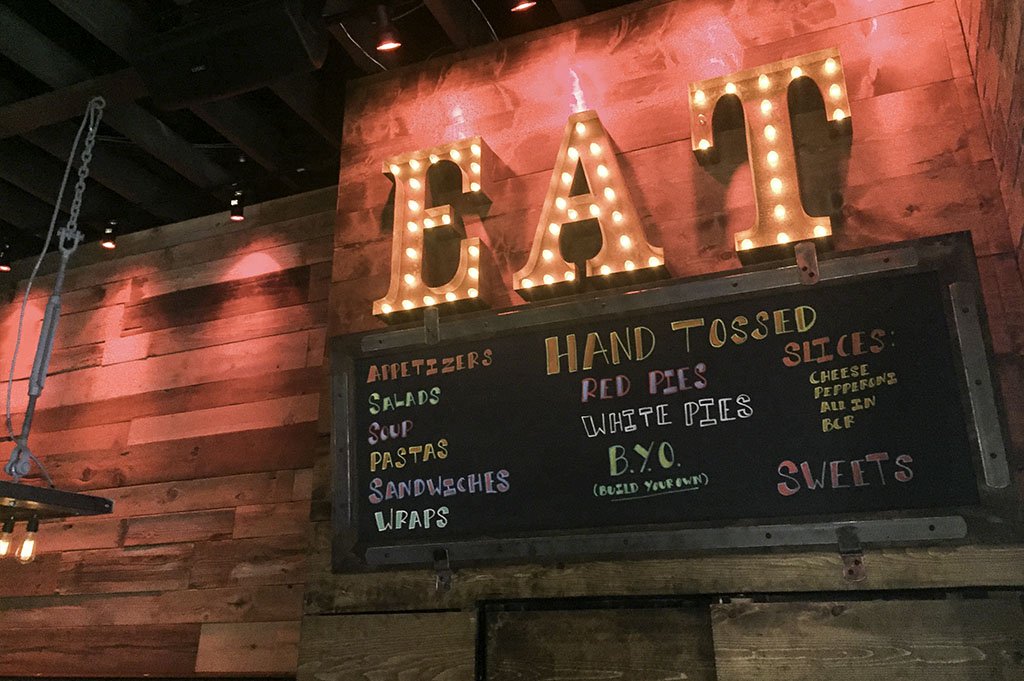 EAT
APPETIZERS
SALADS
SOUP
PASTAS
SANDWICHES
WRAPS
HAND TOSSED
RED PIES
WHITE PIES
B.Y.O.
(BUILD YOUR OWN)
SLICES:
CHEESE
PEPPERONI
ALL IN
BCR
SWEETS